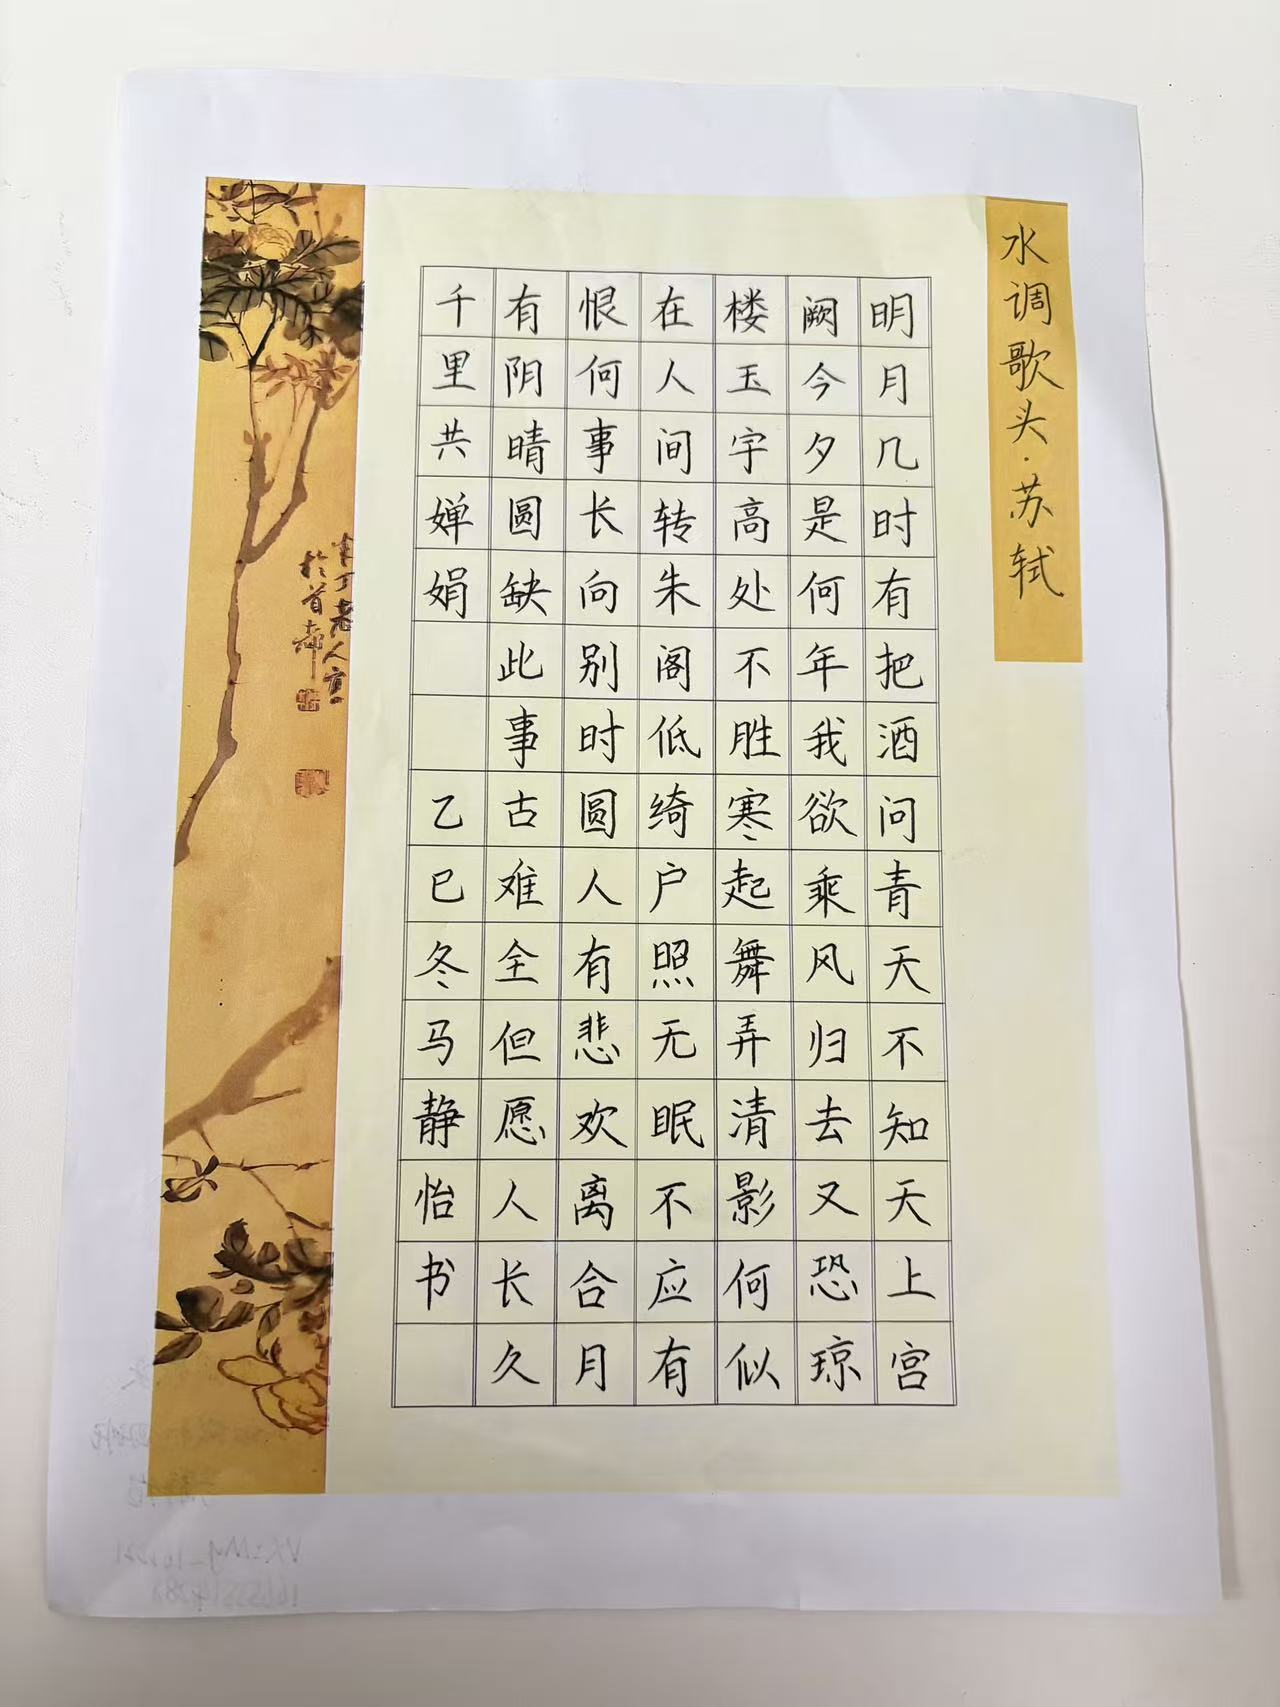 水调歌头·苏轼
明月几时有把酒问青天不知天上宫
阙今夕是何年我欲乘风归去又恐琼
楼玉宇高处不胜寒起舞弄清影何似
在人间转朱阁低绮户照无眠不应有
恨何事长向别时圆人有悲欢离合月
有阴晴圆缺此事古难全但愿人长久
千里共婵娟 乙巳冬马静怡书
老人
於首都